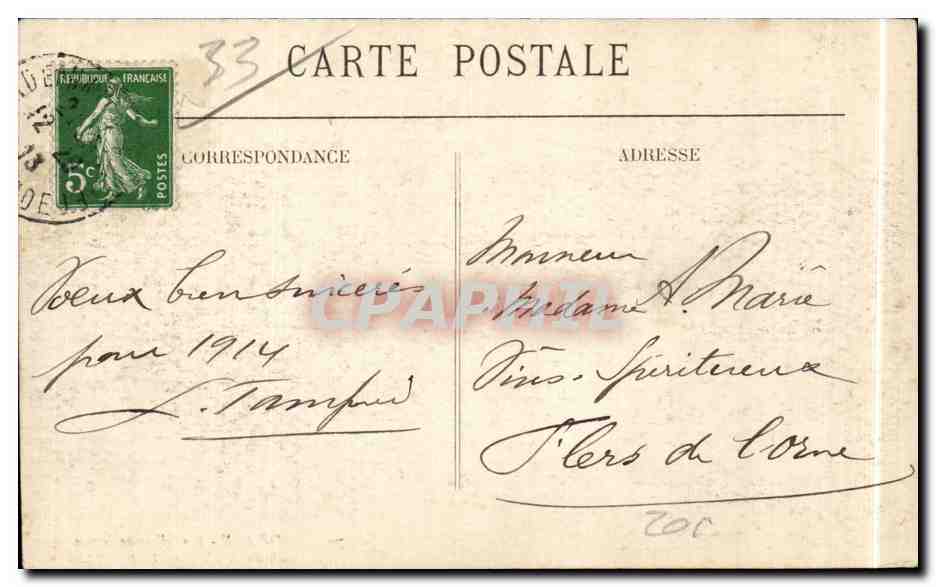 33
CARTE POSTALE
REPUBLIQUE FRANÇAISE
5c
POSTES
13
CORRESPONDANCE
ADRESSE
Voeux bien sincères
pour 1914
Monsieur
Madame A. Marie
Vins. Spiritueux
Flers de l'Orne
20c
CPAPHIL